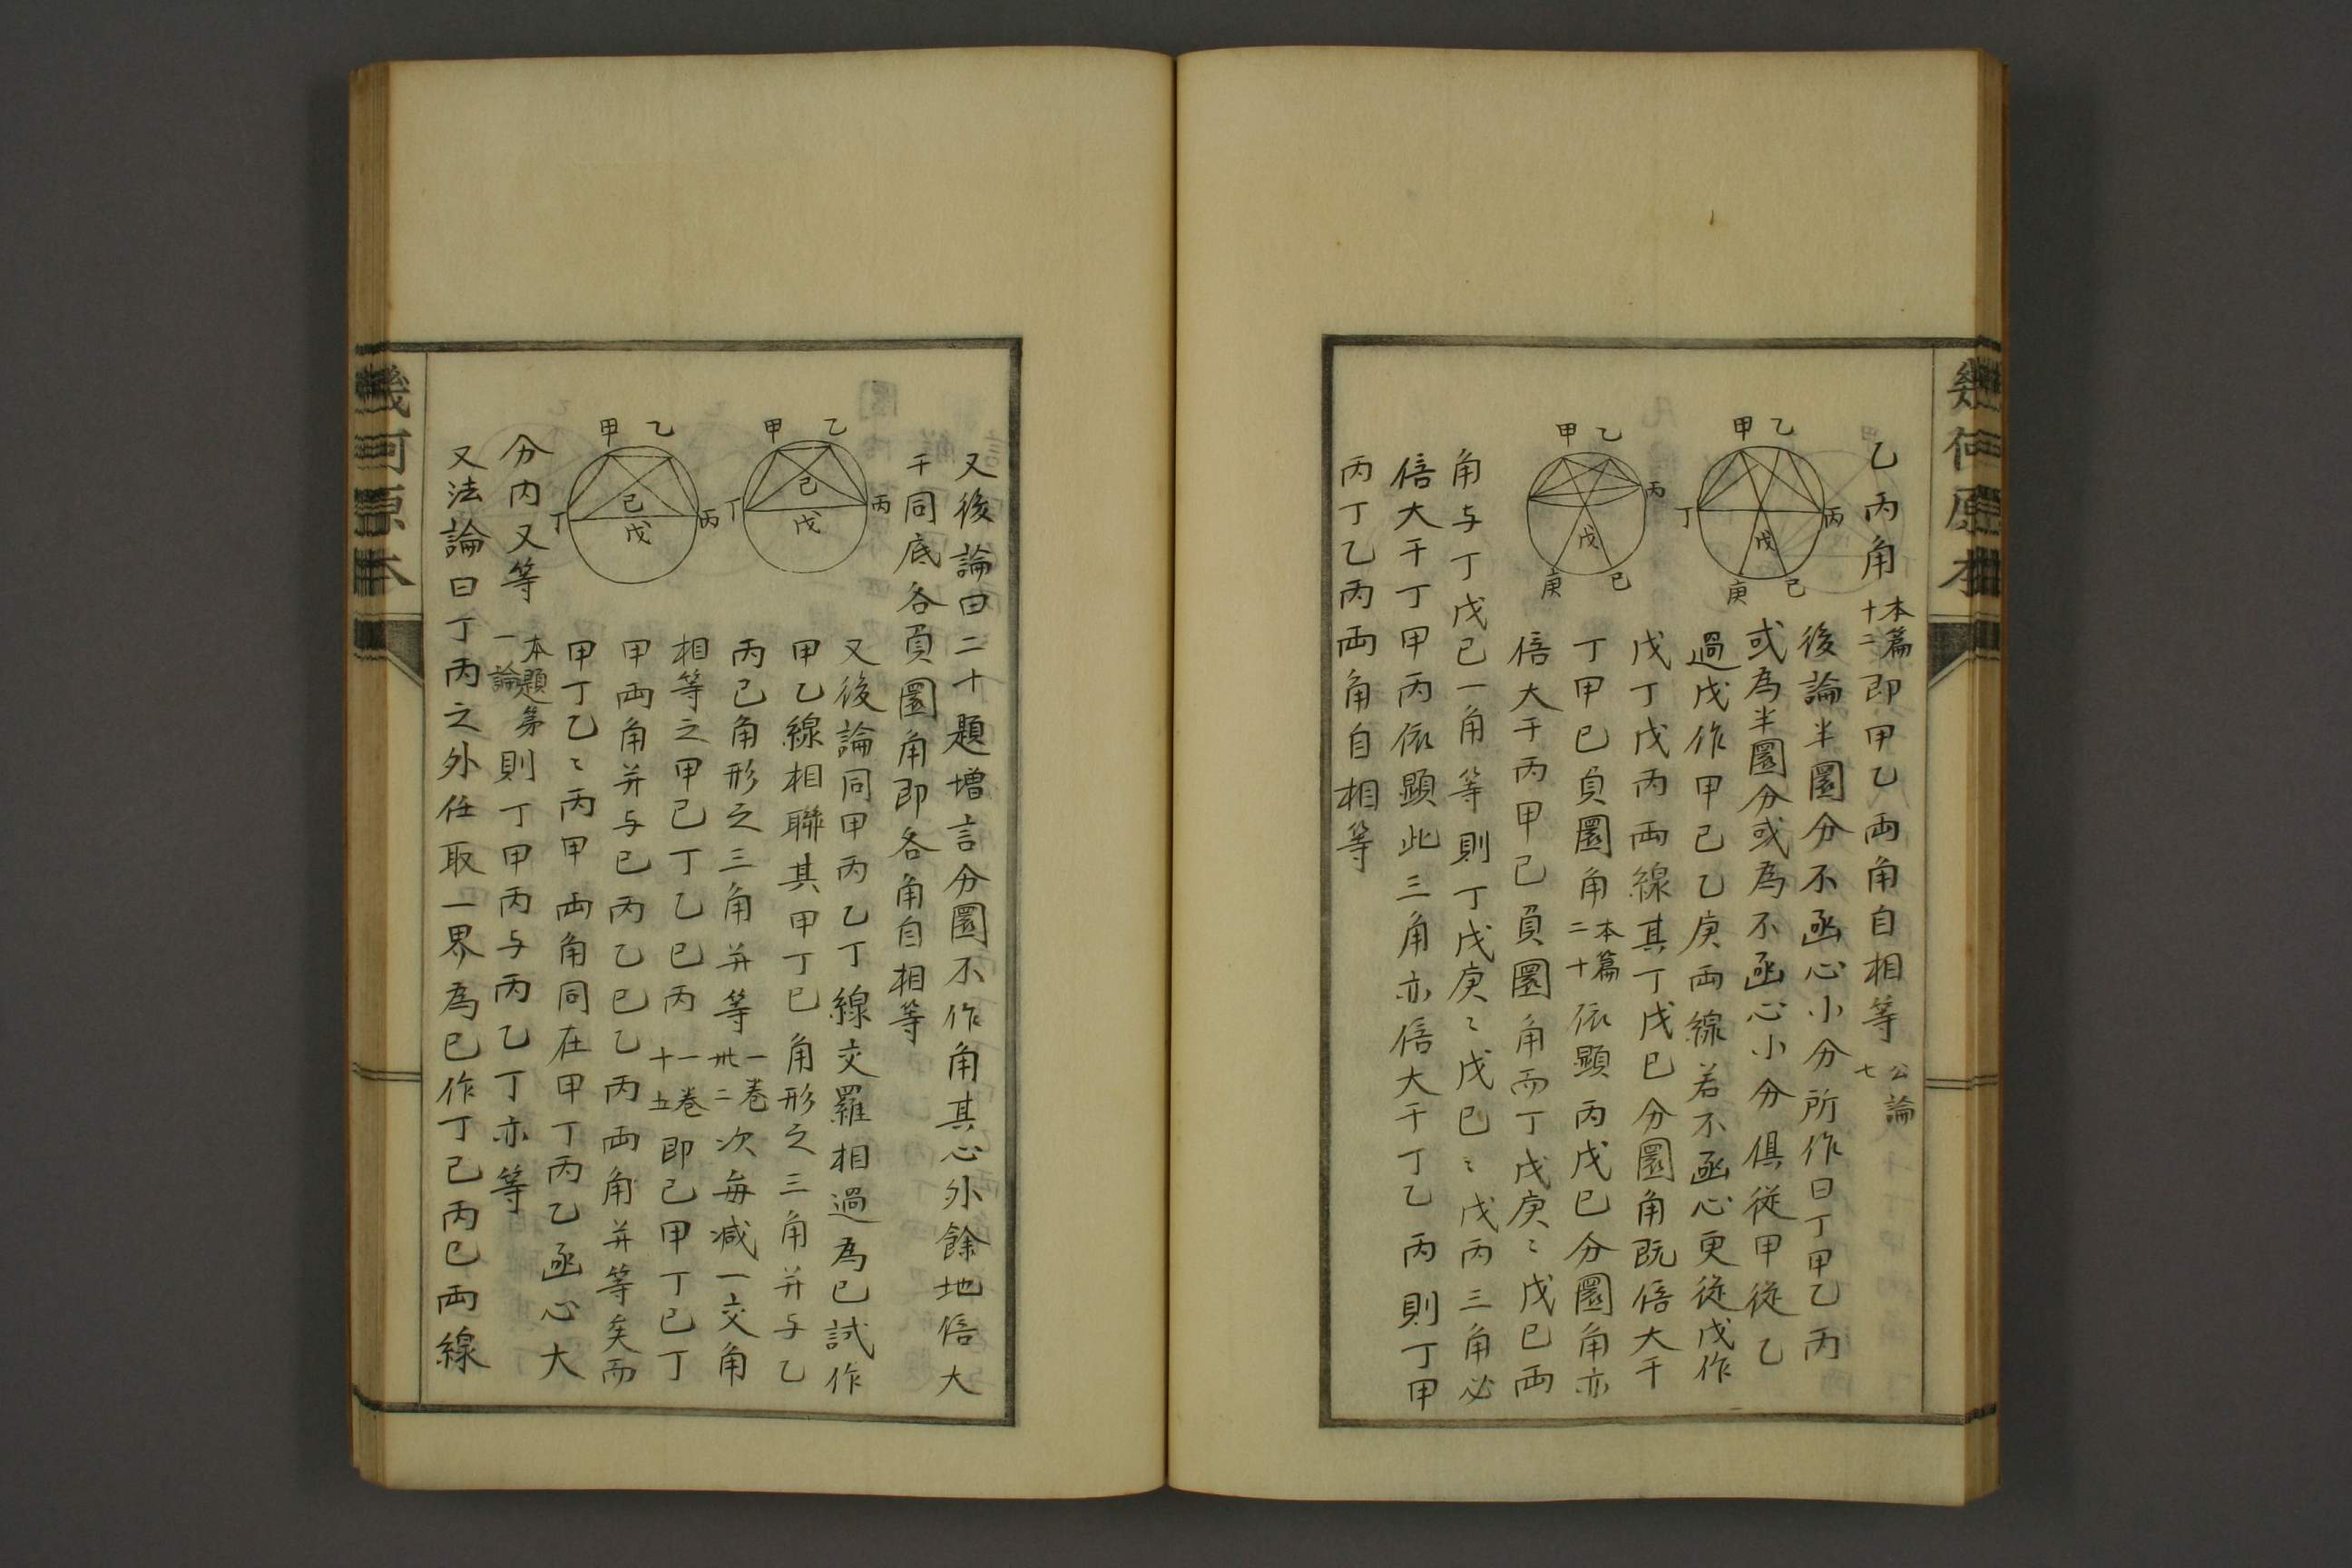 幾何原本
乙丙角本篇十二即甲乙両角自相等公論七
甲乙
丁丙
戊
庚己
後論半圜分不函心小分所作曰丁甲乙丙
或為半圜分或為不函心小分俱從甲從乙
過戊作甲己乙庚両線若不函心更從戊作
戊丁戊丙両線其丁戊巳分圜角既倍大干
甲乙
丙
戊
庚己
丁甲巳負圜角本篇二十依顕丙戊巳分圜角亦
倍大于丙甲己負圜角而丁戊庚〻戊巳両
角与丁戊己一角等則丁戊庚〻戊巳〻戊丙三角必
倍大干丁甲丙依顕此三角亦倍大干丁乙丙則丁甲
丙丁乙丙両角自相等
又後論曰二十題增言分圜不作角其心外餘地倍大
干同底各負圜角即各角自相等
甲乙
丁丙
己
戊
又後論同甲丙乙丁線交羅相過為己試作
甲乙線相聯其甲丁巳角形之三角并与乙
丙己角形之三角并等一卷卅二次每减一交角
相等之甲己丁乙巳丙一卷十五即己甲丁巳丁
甲乙
丁丙
己
戊
甲両角并与己丙乙巳乙丙両角并等矣而
甲丁乙〻丙甲両角同在甲丁丙乙函心大
分内又等本題苐一論則丁甲丙与丙乙丁亦等
又法論曰丁丙之外任取一界為己作丁己丙巳両線
幾何原本